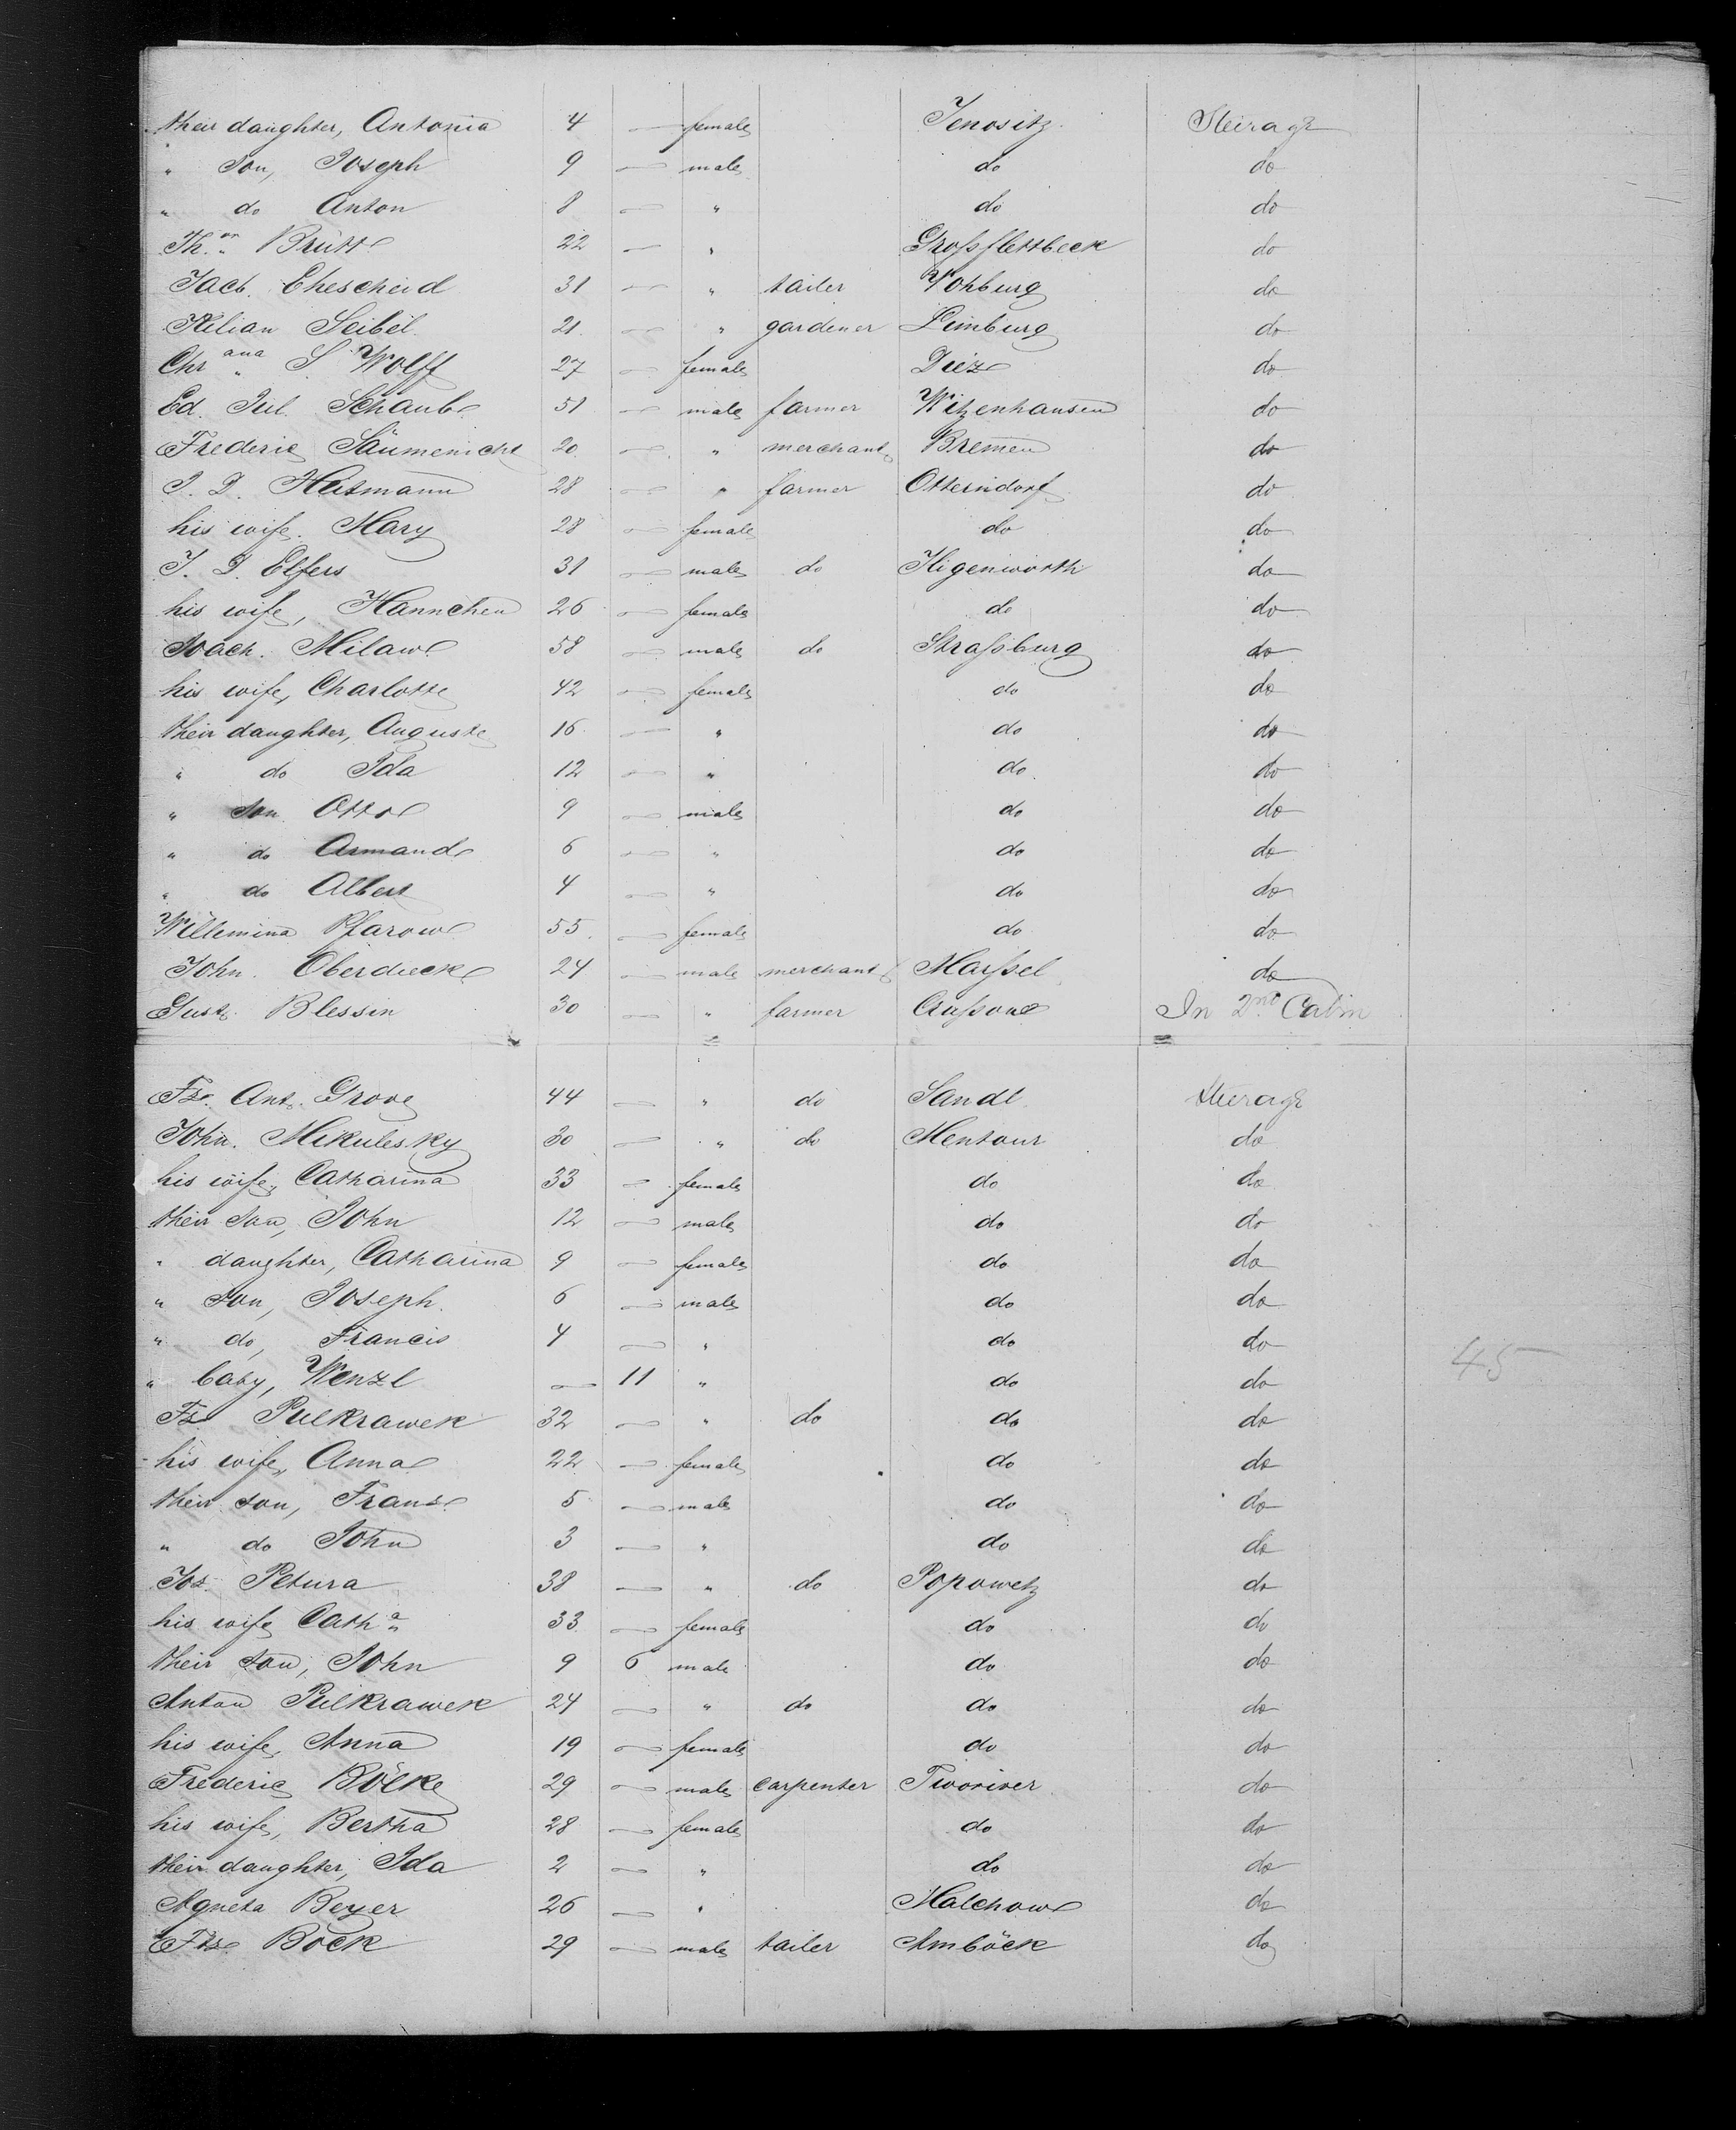 their daughter, Antonia 4 — female Jenositz Steirage
" Son, Joseph 9 — male do do
" do Anton 8 — " do do
Th.as Brütt 22 — " Großflottbeck do
Jacb. Ehescheid 31 — " tailer Vohburg do
Kilian Seibel 21 — " gardener Limburg do
Chr.ana S Wolff 27 — female Diez do
Ed. Jul. Schaub 51 — male farmer Witzenhausen do
Frederic Säumenicht 20 — " merchant Bremen do
J. D. Hutmann 28 — " farmer Otterndorf do
his wife. Mary 28 — female do do
J. D. Elfers 31 — male do Higenworth do
his wife, Hannchen 26 — female do do
Joach. Milaw 58 — male do Straßburg do
his wife, Charlotte 42 — female do do
their daughter, Auguste 16 — " do do
" do Ida 12 — " do do
" son Otto 9 — male do do
" do Armand 6 — " do do
" do Albert 4 — " do do
Willemina Pfarow 55 — female do do
John. Oberdieck 24 — male merchant Marßel do
Gust. Blessin 30 — " farmer In 2nd Cabin
Fz. Ant. Grove 44 — " do Sandl Steirage
John. Mikulesky 30 — " do Mentour do
his wife, Catharina 33 — female do do
their son, John 12 — male do do
" daughter, Catharina 9 — female do do
" son, Joseph. 6 — male do do
" do, Francis 4 — " do do
" baby, Wenzl — 11 " do do
45
Fz. Pulkrawek 32 — " do do do
his wife, Anna 22 — female do do
their son, Franz 5 — male do do
" do John 3 — " do do
Jos. Petura 38 — " do Popowetz do
his wife Cath.a 33 — female do do
their son, John 9 6 male do do
Anton Pulkrawek 24 — " do do do
his wife, Anna 19 — female do do
Frederic Bölke 29 — male carpenter Tworiver do
his wife, Bertha 28 — female do do
their daughter, Ida 2 — " do do
Agneta Beyer 26 — " Malchow do
Fz. Böck 29 — male tailer Amböck do